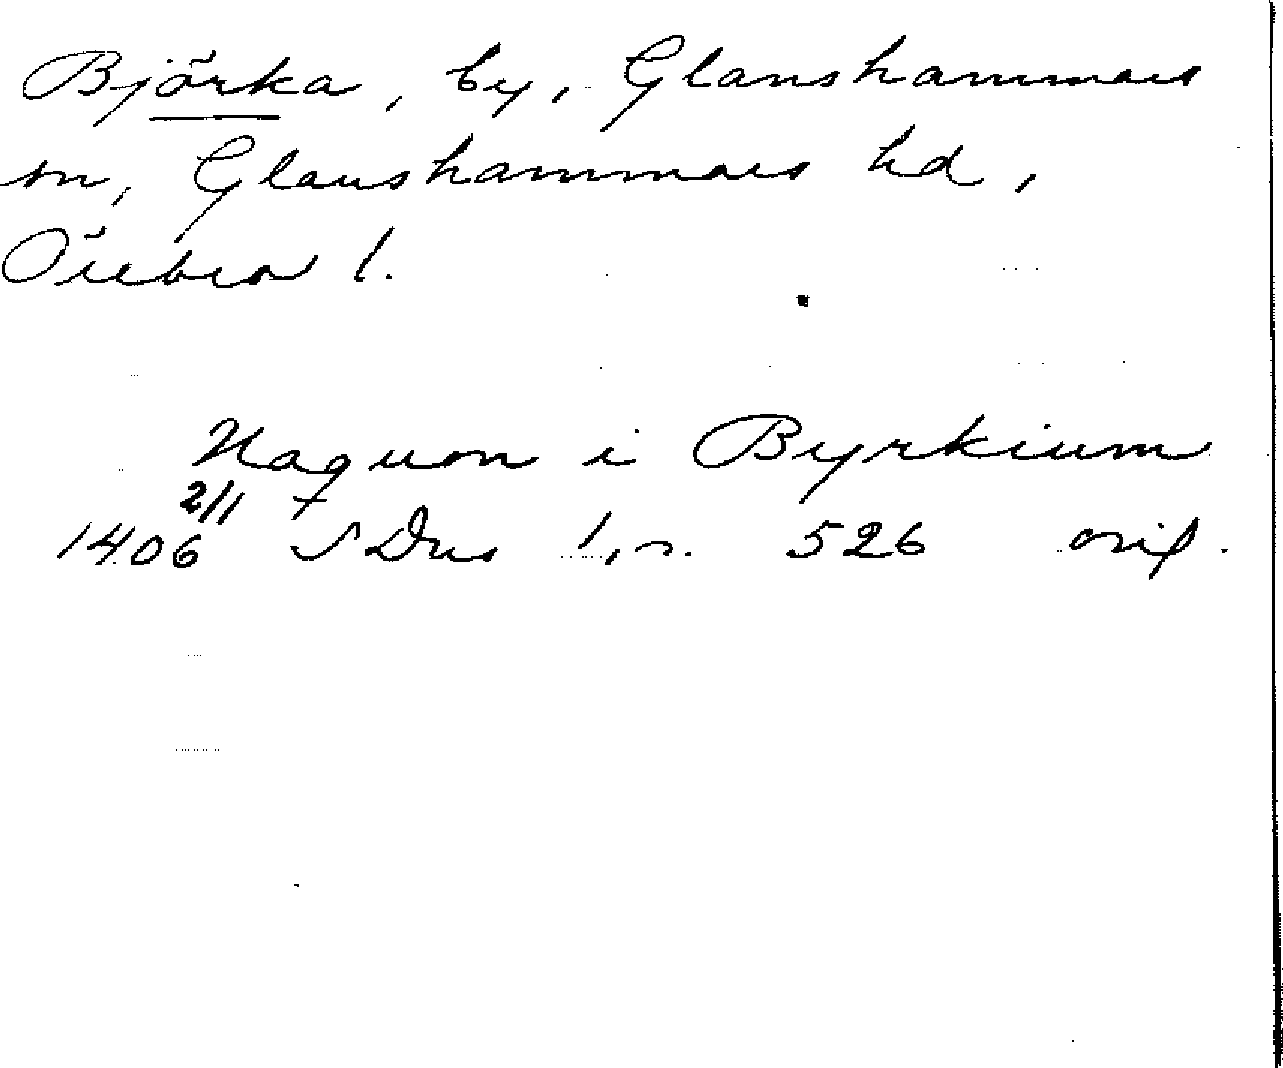 Björka, by, Glanshammars
sn, Glanshammars hd,
Örebro l.
Haquon i Byrkium
2/11
1406 SDns 1, n. 526 orig.